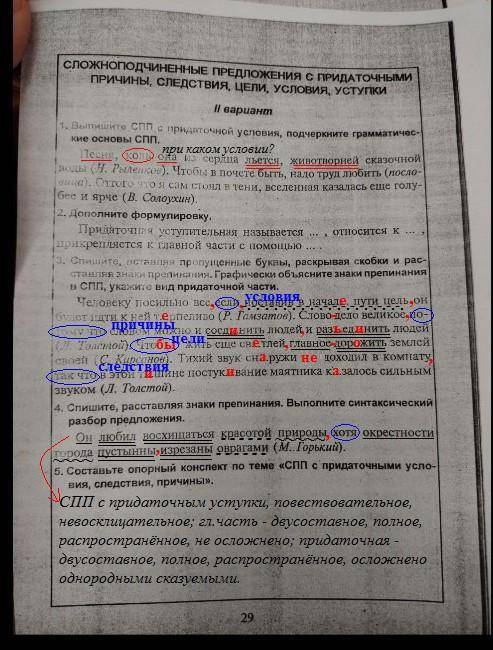 СЛОЖНОПОДЧИНЕННЫЕ ПРЕДЛОЖЕНИЯ С ПРИДАТОЧНЫМИ
ПРИЧИНЫ, СЛЕДСТВИЯ, ЦЕЛИ, УСЛОВИЯ, УСТУПКИ
II вариант
1. Выпишите СПП с придаточной условия, подчеркните грамматичес-
кие основы СПП.
при каком условии?
Песня, коль она из сердца льется, животворней сказочной
воды (Н. Рыленков). Чтобы в почете быть, надо труд любить (посло-
вица). Оттого что я сам стоял в тени, вселенная казалась еще голу-
бее и ярче (В. Солоухин).
2. Дополните формулировку.
Придаточная уступительная называется ... , относится к ... ,
прикрепляется к главной части с помощью ... .
3. Спишите, вставляя пропущенные буквы, раскрывая скобки и рас-
ставляя знаки препинания. Графически объясните знаки препинания
в СПП, укажите вид придаточной части.
условия
Человеку посильно все, если поставив в начале пути цель, он
будет идти к ней терпеливо (Р. Гамзатов). Слово-дело великое, по-
причины
тому что словом можно и соединить людей, и разъединить людей
цели
(Л. Толстой). Чтобы жить еще светлей, главное-дорожить землей
своей (С. Кирсанов). Тихий звук снаружи не доходил в комнату,
следствия
так что в этой тишине постукивание маятника казалось сильным
звуком (Л. Толстой).
4. Спишите, расставляя знаки препинания. Выполните синтаксический
разбор предложения.
Он любил восхищаться красотой природы, хотя окрестности
города пустынны, изрезаны оврагами (М. Горький).
5. Составьте опорный конспект по теме «СПП с придаточными усло-
вия, следствия, причины».
СПП с придаточным уступки, повествовательное,
невосклицательное; гл.часть - двусоставное, полное,
распространённое, не осложнено; придаточная -
двусоставное, полное, распространённое, осложнено
однородными сказуемыми.
29